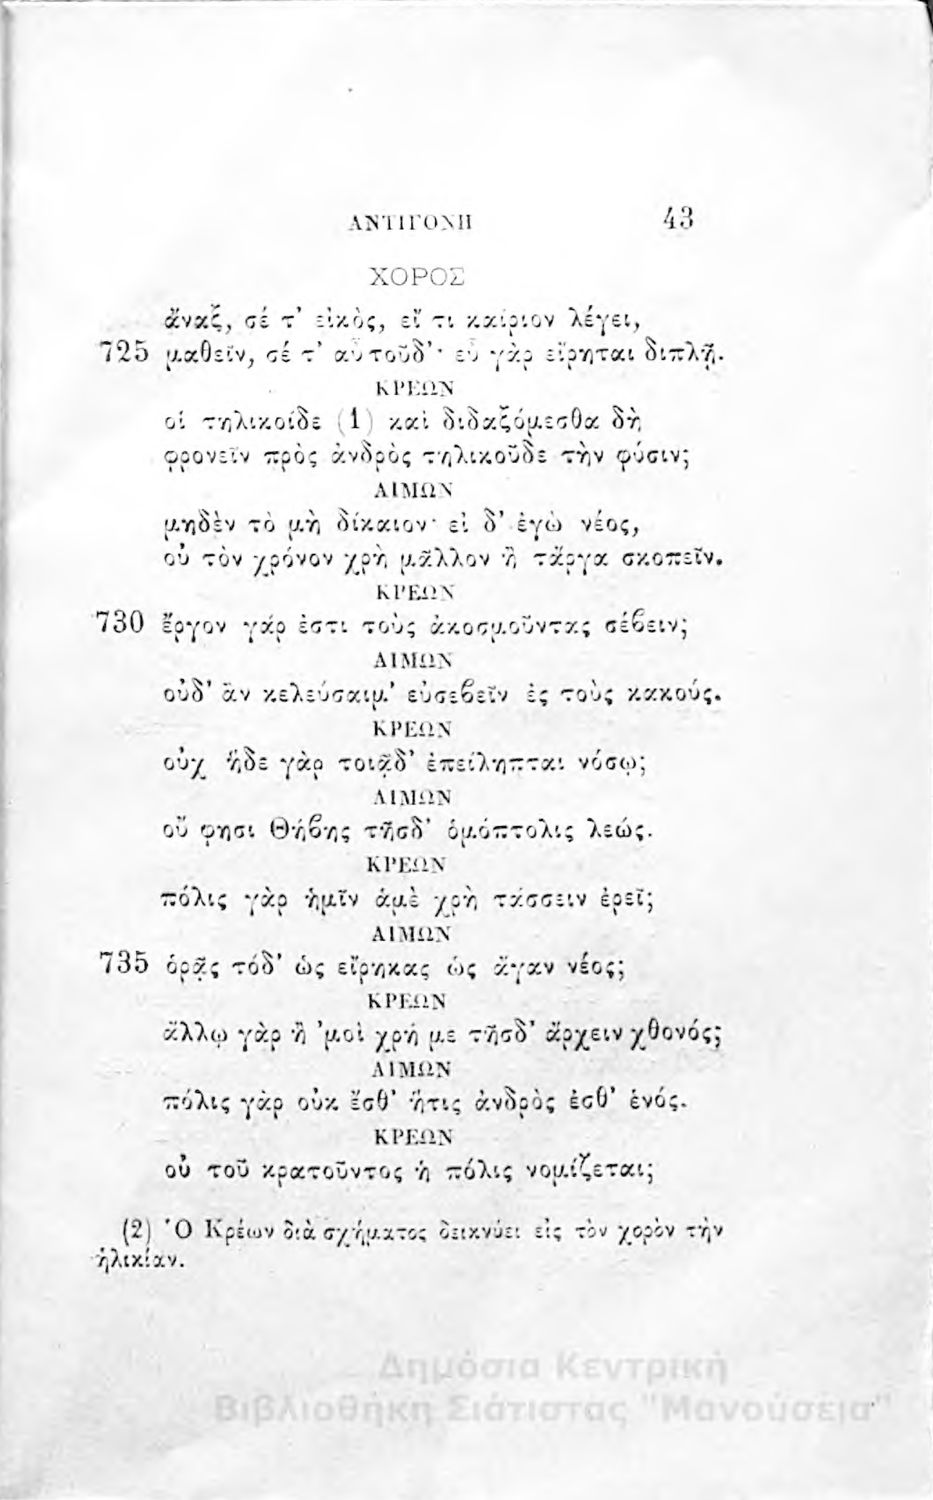 ΑΝΤΙΓΟΝΗ 43
ΧΟΡΟΣ
ἄναξ, σέ τ’ εἰκὸς, εἴ τι καίριον λέγει,
725 μαθεῖν, σέ τ’ αὖ τοῦδ’· εὖ γὰρ εἴρηται διπλῇ.
ΚΡΕΩΝ
οἱ τηλικοίδε (1) καὶ διδαξόμεσθα δὴ
φρονεῖν πρὸς ἀνδρὸς τηλικοῦδε τὴν φύσιν;
ΑΙΜΩΝ
μηδὲν τὸ μὴ δίκαιον· εἰ δ’ ἐγὼ νέος,
οὐ τὸν χρόνον χρὴ μᾶλλον ἢ τἄργα σκοπεῖν.
ΚΡΕΩΝ
730 ἔργον γάρ ἐστι τοὺς ἀκοσμοῦντας σέϐειν;
ΑΙΜΩΝ
οὐδ’ ἂν κελεύσαιμ’ εὐσεϐεῖν ἐς τοὺς κακούς.
ΚΡΕΩΝ
οὐχ ἥδε γὰρ τοιᾷδ’ ἐπείληπται νόσῳ;
ΑΙΜΩΝ
οὔ φησι Θήϐης τῆσδ’ ὁμόπτολις λεώς.
ΚΡΕΩΝ
πόλις γὰρ ἡμῖν ἁμὲ χρὴ τάσσειν ἐρεῖ;
ΑΙΜΩΝ
735 ὁρᾷς τόδ’ ὡς εἴρηκας ὡς ἄγαν νέος;
ΚΡΕΩΝ
ἄλλῳ γὰρ ἢ ’μοὶ χρή με τῆσδ’ ἄρχειν χθονός;
ΑΙΜΩΝ
πόλις γὰρ οὐκ ἔσθ’ ἥτις ἀνδρὸς ἐσθ’ ἑνός.
ΚΡΕΩΝ
οὐ τοῦ κρατοῦντος ἡ πόλις νομίζεται;
(2) Ὁ Κρέων διὰ σχήματος δεικνύει εἰς τὸν χορὸν τὴν
ἡλικίαν.
Δημόσια Κεντρική
Βιβλιοθήκη Σιάτιστας "Μανούσεια"